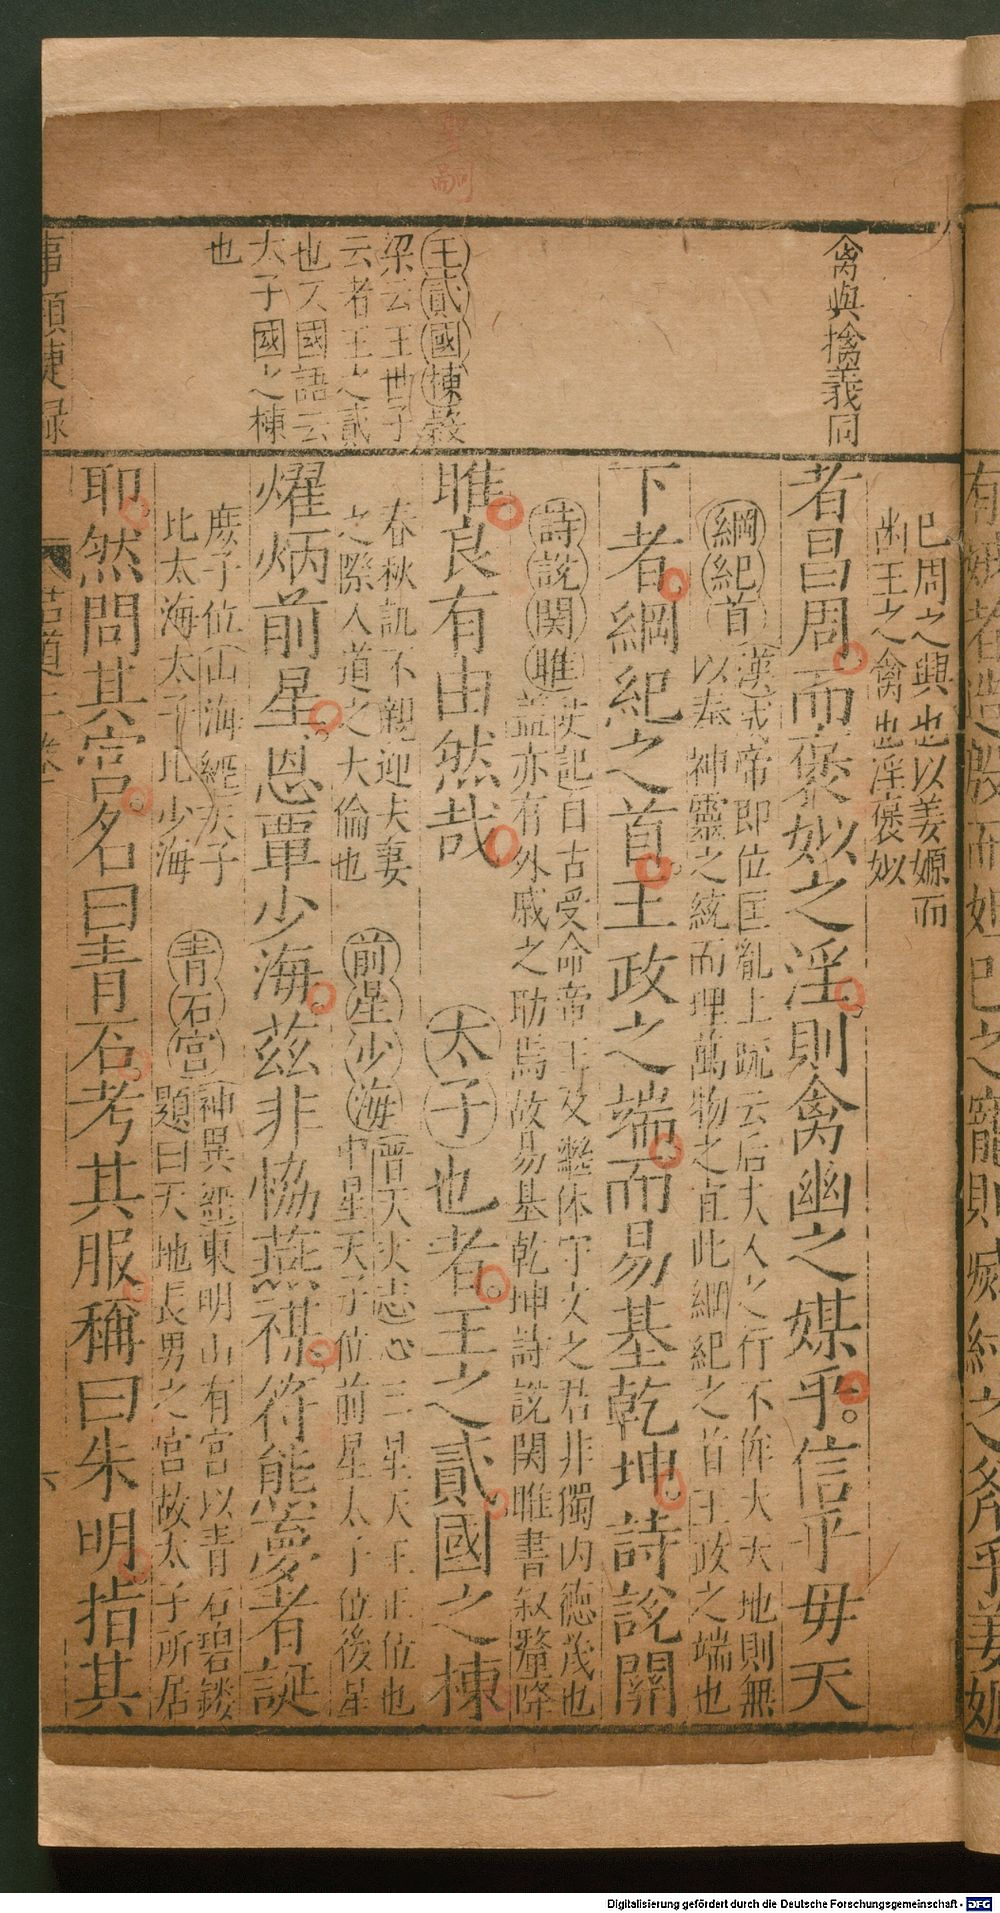 禽與擒義同
王貳國棟
梁云王世子
云者王之貳
也又國語云
太子國之棟
也
已周之興也以姜嫄而
幽王之禽也淫褒姒
者昌周而褒姒之淫則禽幽之媒乎信乎毋天
綱紀首
漢戒帝即位匡亂上疏云后夫人之行不侔大天地則無
以奉神靈之統而理萬物之宜此綱紀之首王政之端也
下者綱紀之首王政之端而易基乾坤詩說關
詩說関雎
史記自古受命帝王及繼体守文之君非獨內德茂也
蓋亦有外戚之助焉故易基乾坤詩說関雎書叙釐降
雎良有由然哉
太子也者王之貳國之棟
春秋訊不親迎夫妻
之際人道之大倫也
前星少海
晋天夫志心三星天王正位也
中星天子位前星太子位後星
燿炳前星恩覃少海茲非恊燕禖符熊夢者誕
庶子位
山海經天子
比太海太子比少海
青石宮
神異經東明山有宮以青石碧鏤
題曰天地長男之宮故太子所居
耶然問其宮名曰青石考其服稱曰朱明指其
事類捷録
六
Digitalisierung gefördert durch die Deutsche Forschungsgemeinschaft - DFG